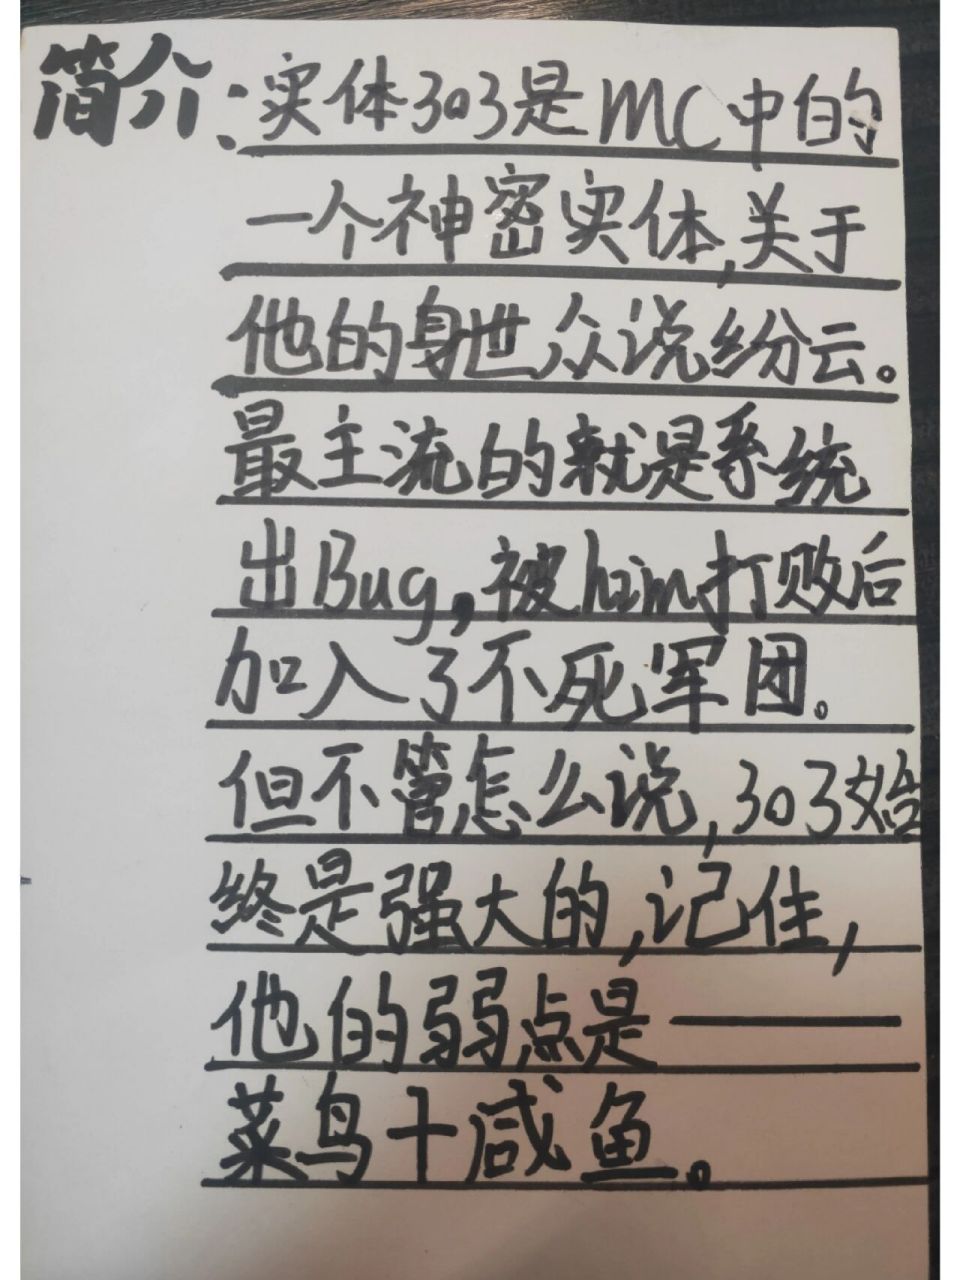 简介:实体303是MC中的
一个神密实体,关于
他的身世众说纷云。
最主流的就是系统
出Bug,被him打败后
加入了不死军团。
但不管怎么说,303始
终是强大的,记住,
他的弱点是——
菜鸟十咸鱼。